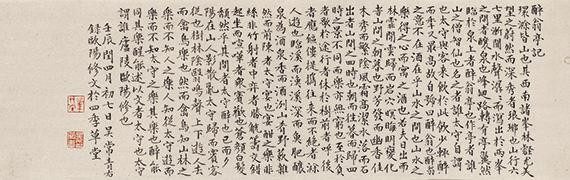 醉翁亭記
環滁皆山也其西南諸峯林壑尤美
望之蔚然而深秀者琅琊也山行六
七里漸聞水聲潺潺而瀉出於兩峯
之間者釀泉也峰迴路轉有亭翼然
臨於泉上者醉翁亭也作亭者誰
山之僧智仙也名之者誰太守自謂
也太守與客來飲於此飲少輒醉
而年又最高故自號曰醉翁也醉翁
之意不在酒在乎山水之間也山水之
樂得之心而寓之酒也若夫日出而
林霏開雲歸而巖穴暝晦明變化
者山間之朝暮也野芳發而幽香佳
木秀而繁陰風霜高潔水落而石
出者山間之四時也朝而往暮而歸四
時之景不同而樂亦無窮也至於負
者歌於途行者休於樹前者呼後
者應傴僂提攜往來而不絕者滁
人遊也臨溪而漁溪深而魚肥釀
泉為酒泉香而酒洌山肴野蔌雜
然而前陳者太守宴也宴酣之樂非
絲非竹射者中弈者勝觥籌交錯
起坐而諠譁者眾賓歡也蒼顏白髮
頹然乎其間者太守醉也已而夕
陽在山人影散亂太守歸而賓客
從也樹林陰翳鳴聲上下遊人去
而禽鳥樂也然而禽鳥知山林之
樂而不知人之樂人知從太守遊而
樂而不知太守之樂其樂也醉能
同其樂醒能述以文者太守也太守
謂誰廬陵歐陽脩也
壬辰閏四月初七日
錄歐陽修文於四季草堂